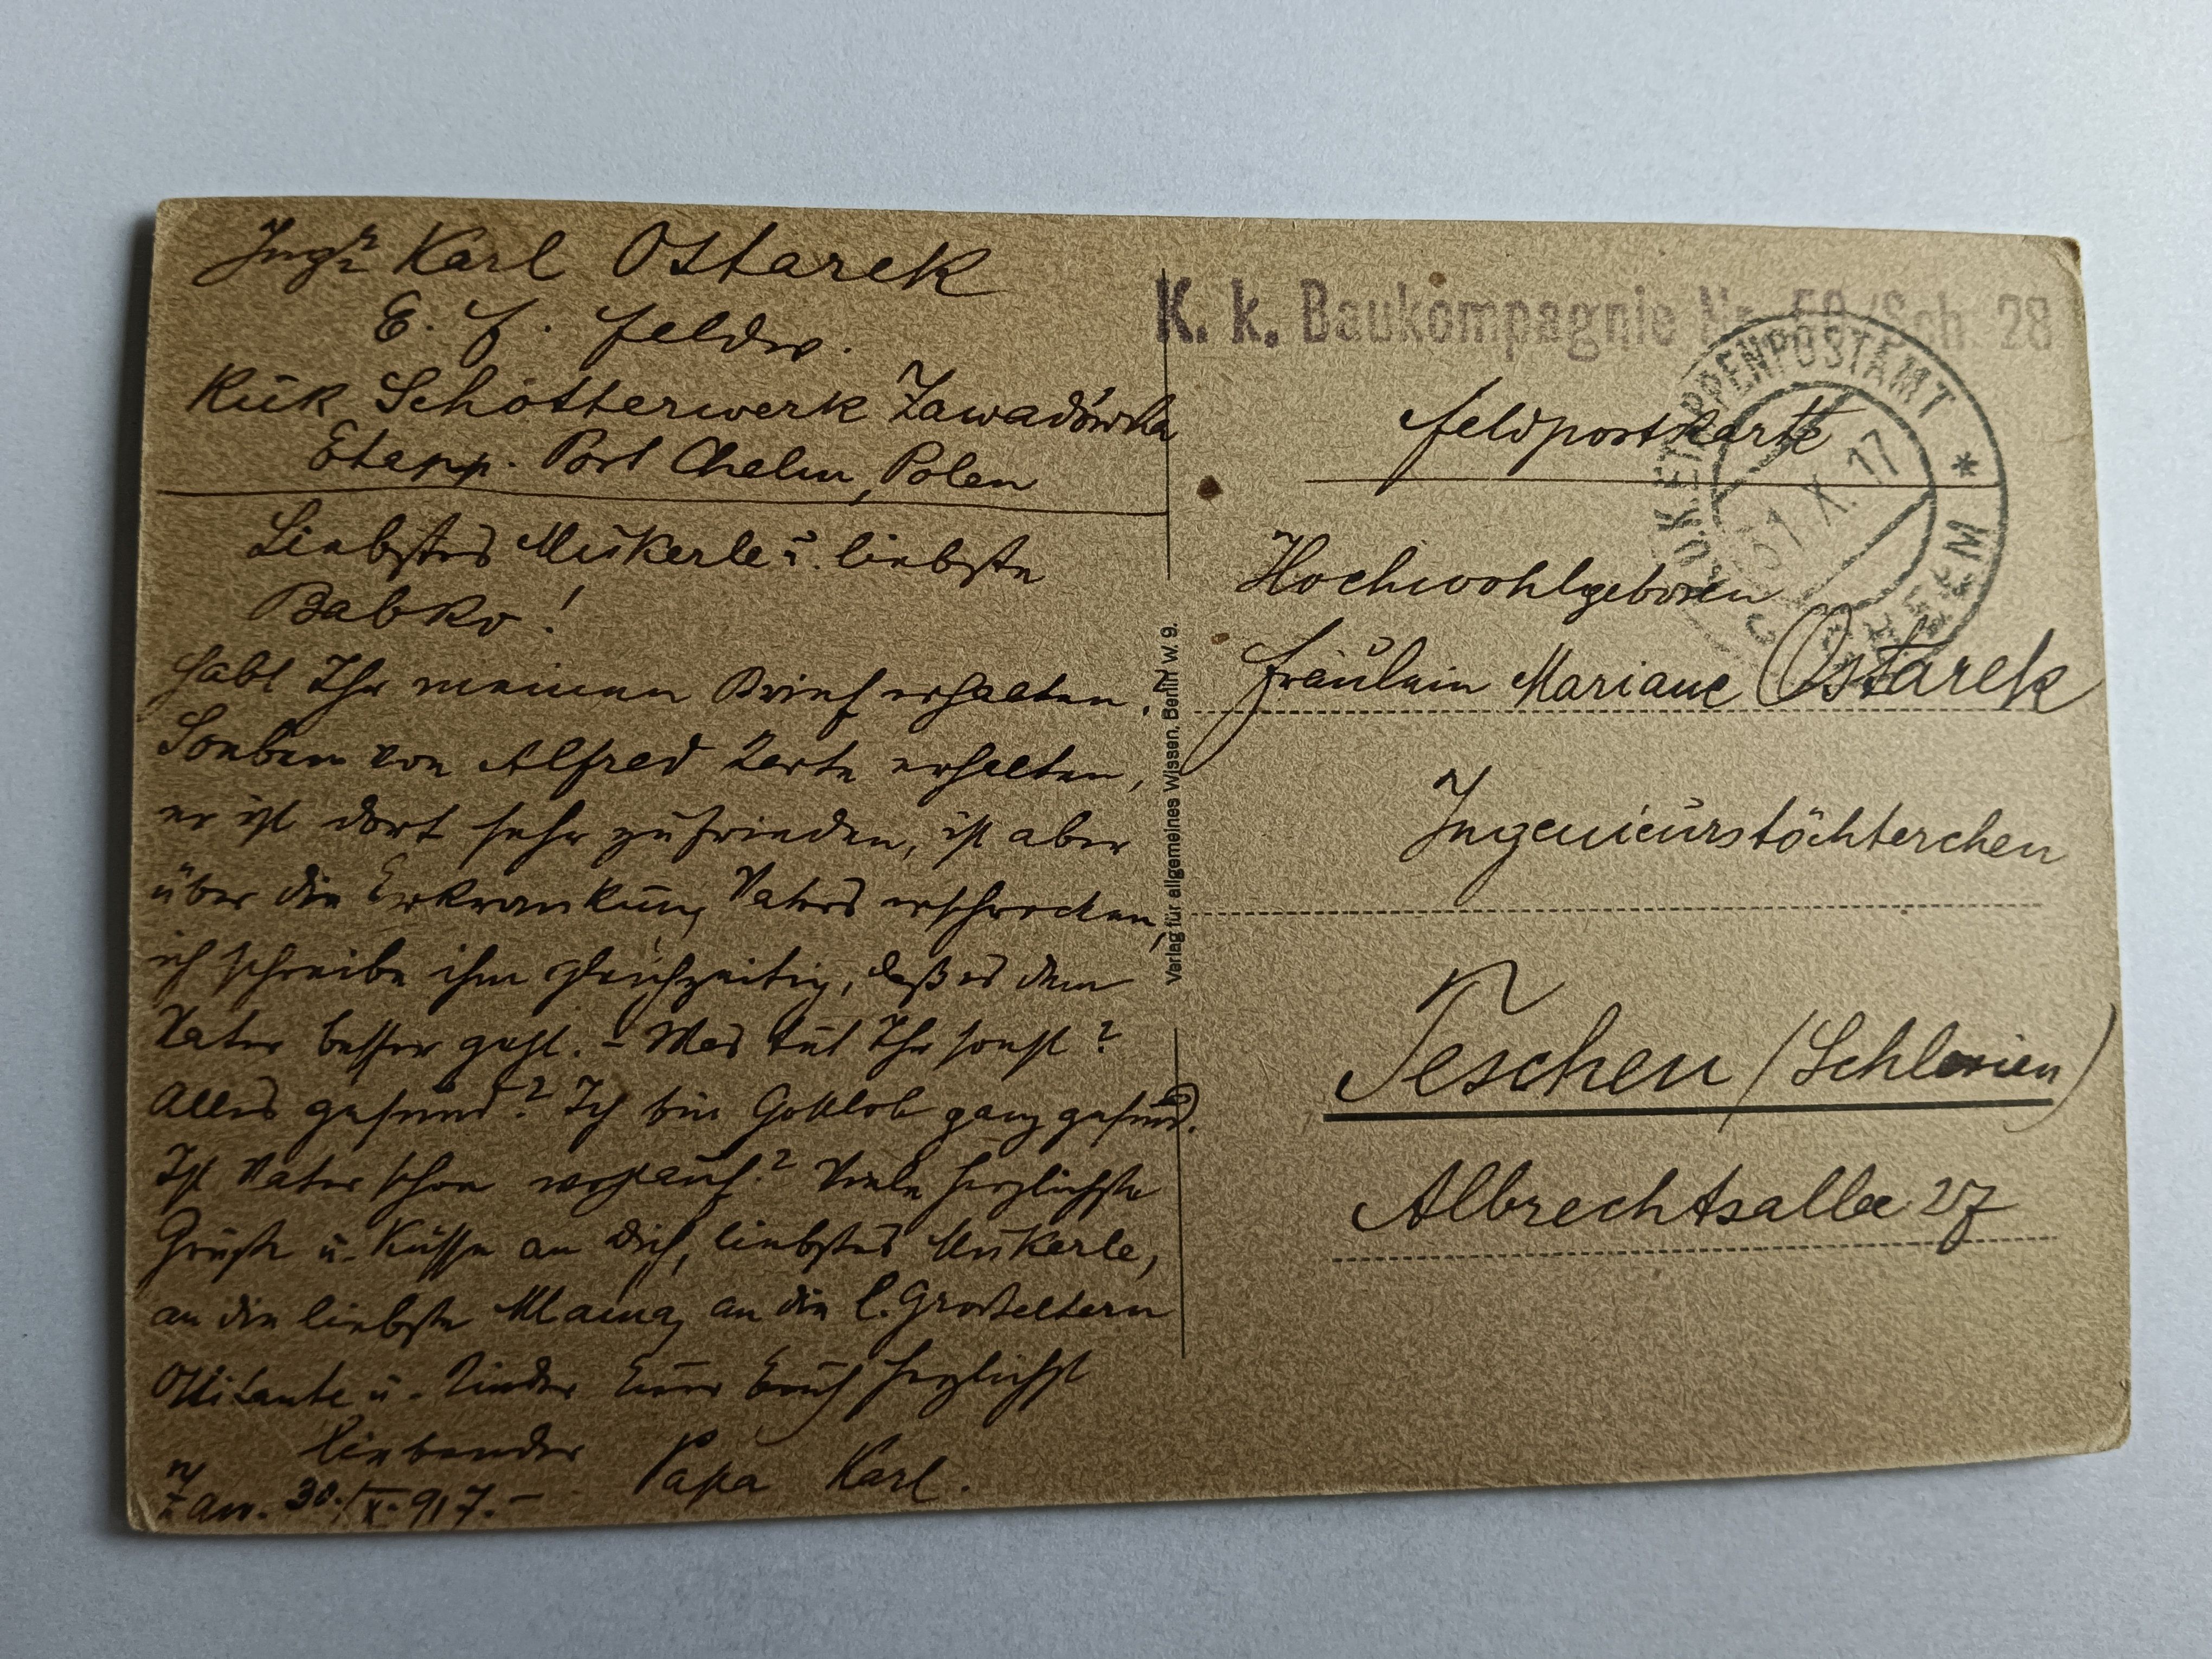 Ingr. Karl Ostarek
E. f. Feldw.
KuK Schotterwerk Zawadówka
Etapp. Post Chelm, Polen
Liebstes Mukerle u. liebste
Babko!
Habt Ihr meinen Brief erhalten.
Soeben von Alfred Karte erhalten,
er ist dort sehr zufrieden, ist aber
über die Erkrankung Vaters erschrocken,
ich schreibe ihm gleichzeitig, daß es dem
Vater besser geht. – Was tut Ihr sonst?
Alles gesund? Ich bin Gottlob ganz gesund.
Ist Vater schon wohlauf? Viele herzlichste
Grüße u. Küsse an Dich, liebstes Mukerle,
an die liebste Mama, an die l. Großeltern
Ottitante u. Kinder Euer Euch herzlichst
liebender Papa Karl.
Zaw. 30./X. 917. –
Verlag für allgemeines Wissen, Berlin W. 9.
K. k. Baukompagnie Nr. /Sch. 28
K.U.K. ETAPPENPOSTAMT *
31. X. 17
Feldpostkarte
Hochwohlgeboren
Fräulein Mariane Ostarek
Ingenieurstöchterchen
Teschen (Schlesien)
Albrechtsallee 27